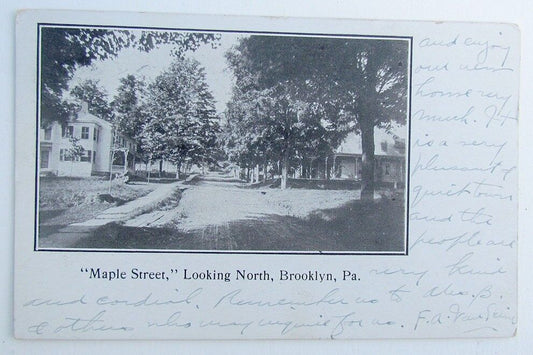 and enjoy
our new
home very
much. It
is a very
pleasant
quiet town
and the
people are
"Maple Street," Looking North, Brooklyn, Pa.
very kind
and cordial. Remember us to Mrs. B.
& others who may inquire for us.